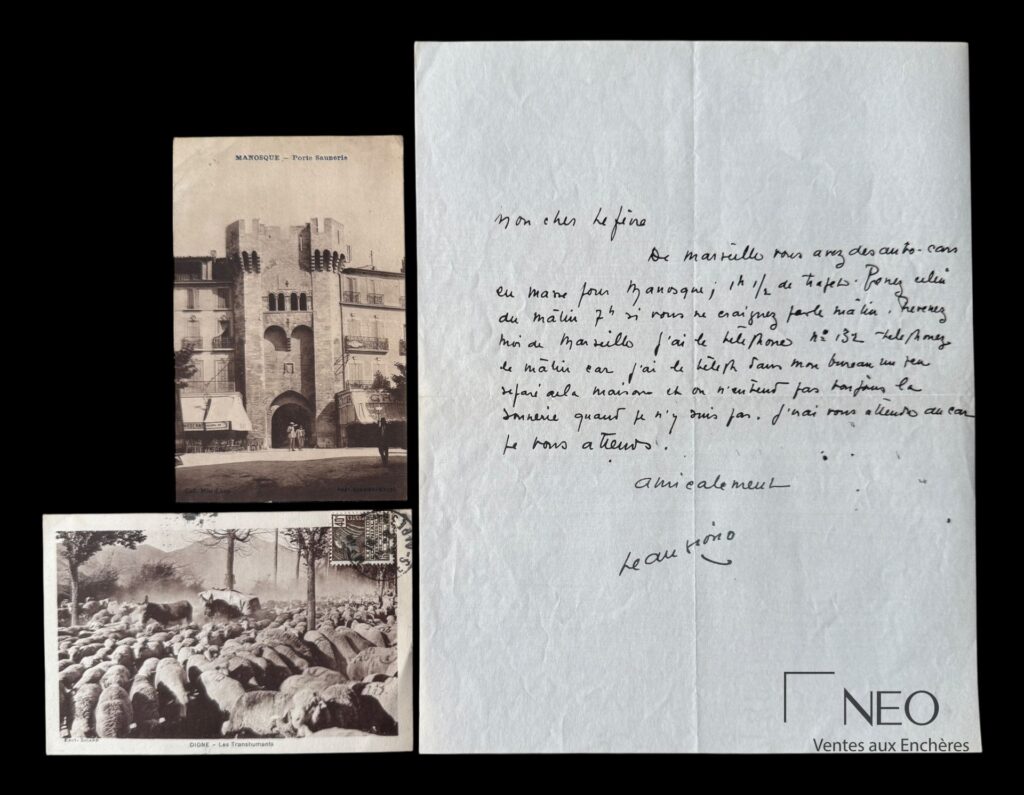 MANOSQUE — Porte Saunerie
DIGNE - Les Transhumants
Mon cher Lefèvre
De Marseille vous avez des auto-cars
en masse pour Manosque; 1h 1/2 de trajet. Prenez celui
du mâtin 7h si vous ne craignez pas le mâtin. Prevenez
moi de Marseille j'ai le téléphone n° 132 telephonez
le mâtin car j'ai le téleph dans mon bureau un peu
separé de la maison et on n'entend pas toujours la
sonnerie quand je n'y suis pas. J'irai vous attendre au car
Je vous attends.
amicalement
Jean Giono
NEO
Ventes aux Enchères